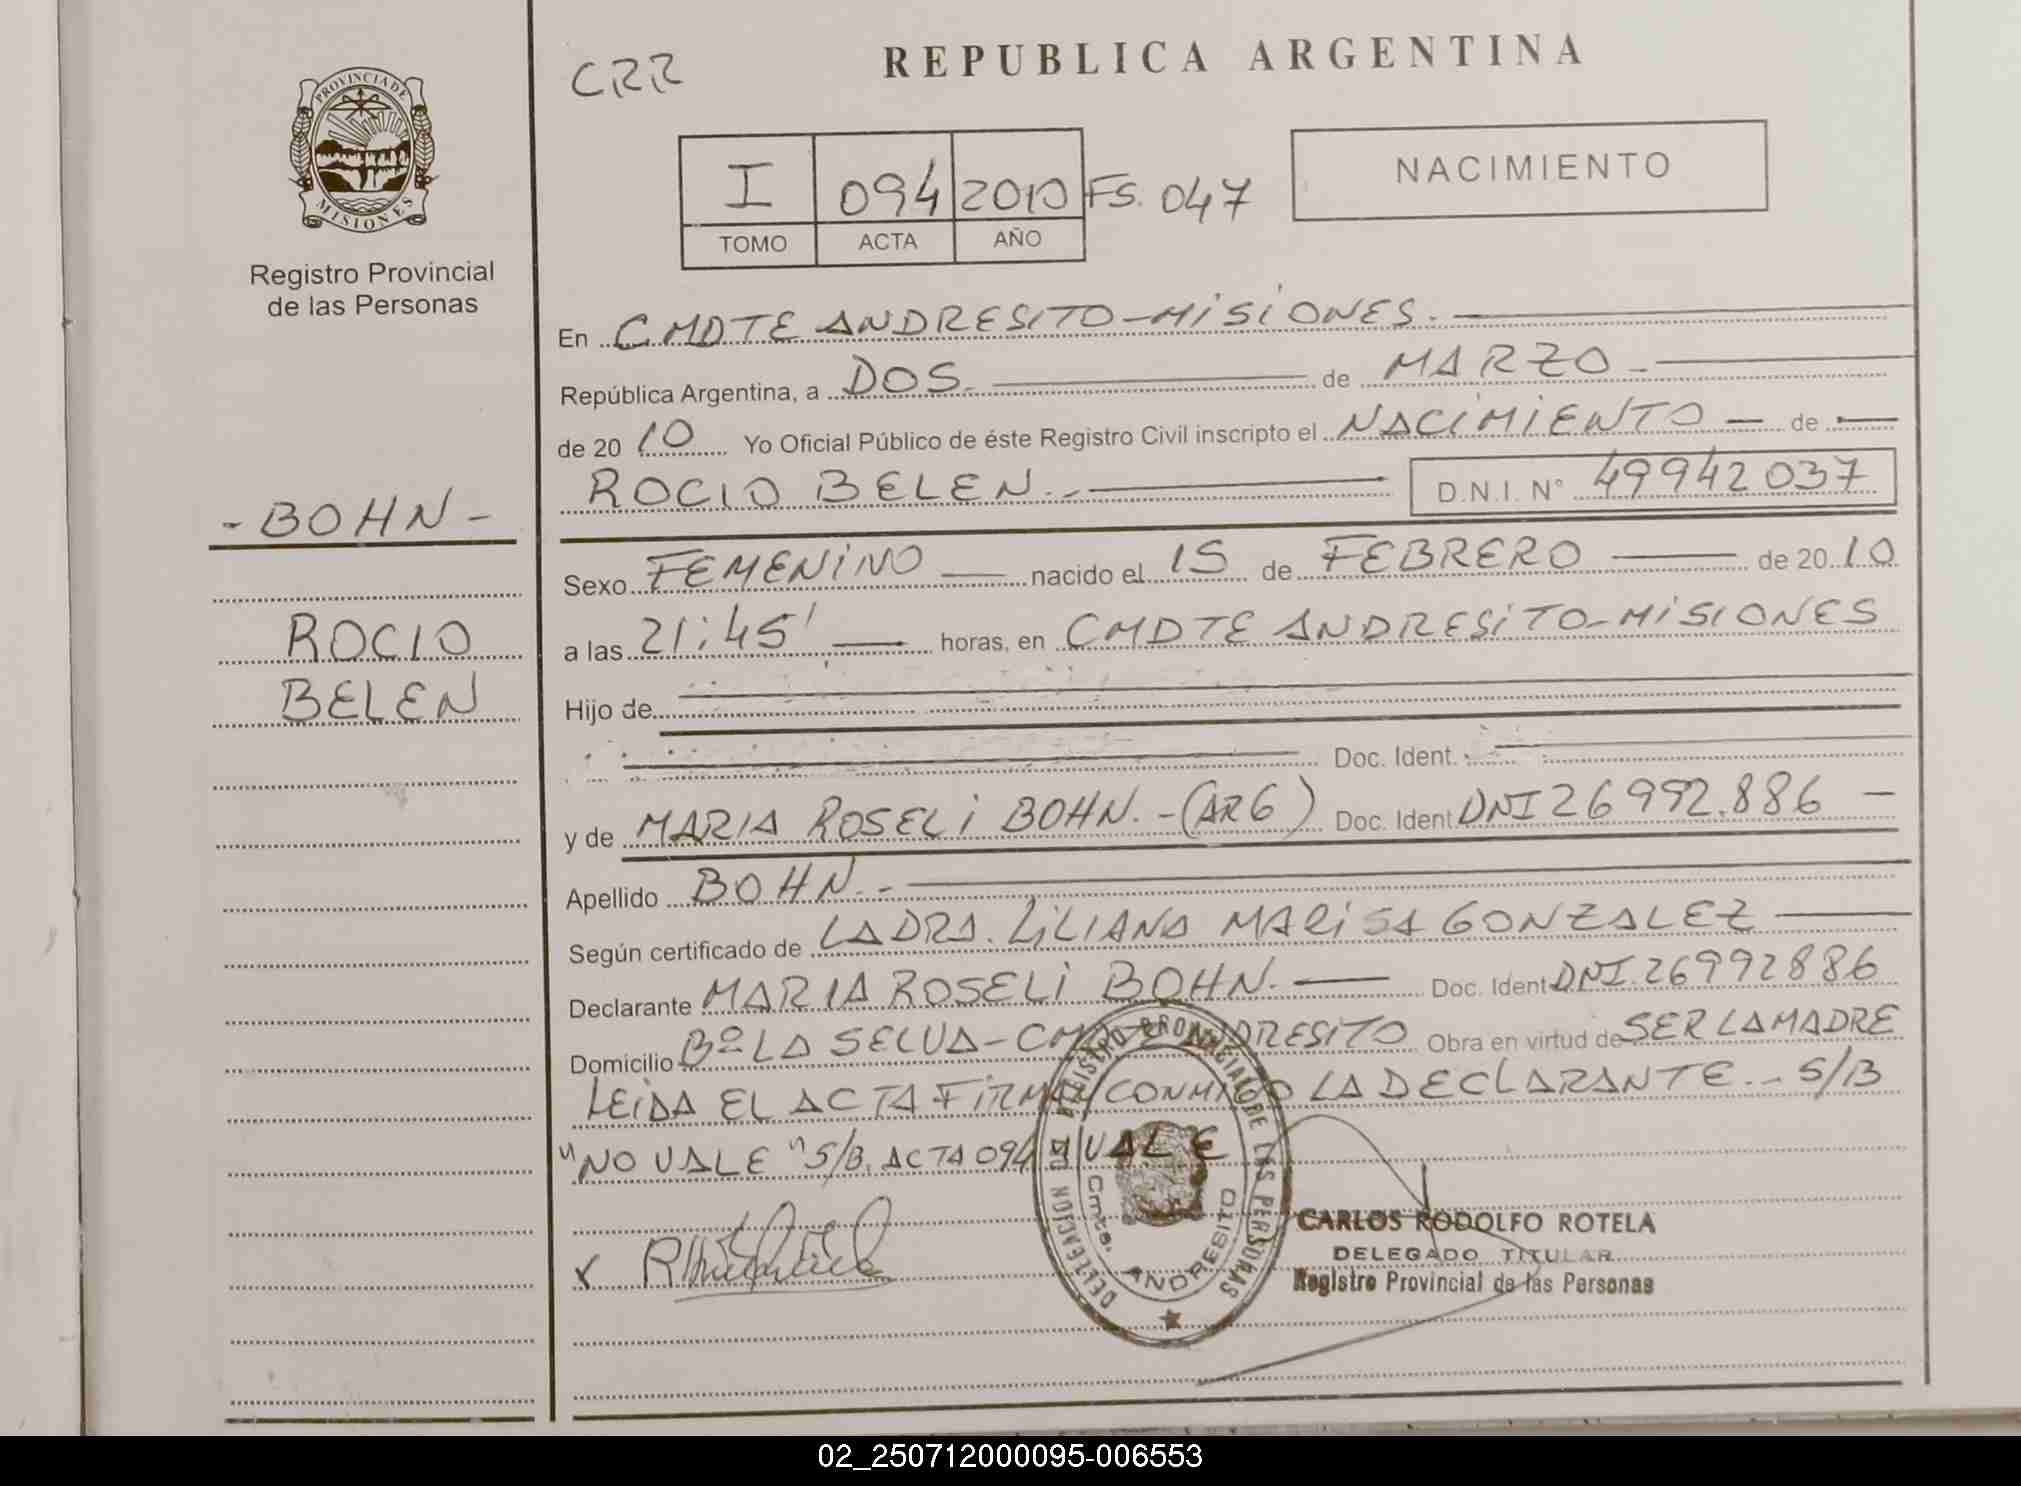 PROVINCIA DE
MISIONES
Registro Provincial
de las Personas
- BOHN -
ROCIO
BELEN
CRR
REPUBLICA ARGENTINA
I 094 2010 FS. 047
TOMO ACTA AÑO
NACIMIENTO
En CMDTE ANDRESITO - MISIONES. -
República Argentina, a DOS. - de MARZO -
de 20 10 Yo Oficial Público de éste Registro Civil inscripto el NACIMIENTO - de -
ROCIO BELEN. - D.N.I. N° 49942037
Sexo FEMENINO - nacido el 15 de FEBRERO - de 20 10
a las 21:45' - horas, en CMDTE ANDRESITO - MISIONES
Hijo de
Doc. Ident.
y de MARIA ROSELI BOHN. - (ARG) Doc. Ident DNI 26992.886 -
Apellido BOHN. -
Según certificado de LA DRA. LILIANA MARISA GONZALEZ -
Declarante MARIA ROSELI BOHN. - Doc. Ident DNI. 26992886
Domicilio Bº LA SELVA - CMDTE ANDRESITO Obra en virtud de SER LA MADRE
LEIDA EL ACTA FIRMA CONMIGO LA DECLARANTE. - S/B
"NO VALE" S/B. ACTA 094 VALE
DELEGACION DEL REGISTRO PROVINCIAL DE LAS PERSONAS
Cmte. ANDRESITO
X
CARLOS RODOLFO ROTELA
DELEGADO TITULAR
Registro Provincial de las Personas
02_250712000095-006553